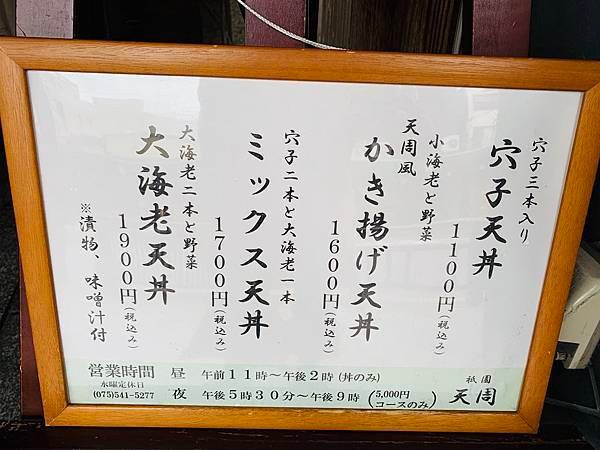 穴子三本入り
穴子天丼
1100円(税込み)
小海老と野菜
天周風
かき揚げ天丼
1600円(税込み)
穴子二本と大海老一本
ミックス天丼
1700円(税込み)
大海老二本と野菜
大海老天丼
1900円(税込み)
※漬物、味噌汁付
営業時間 昼 午前11時～午後2時(丼のみ)
水曜定休日
(075)541-5277 夜 午後5時30分～午後9時(5,000円コースのみ)
祇園
天周